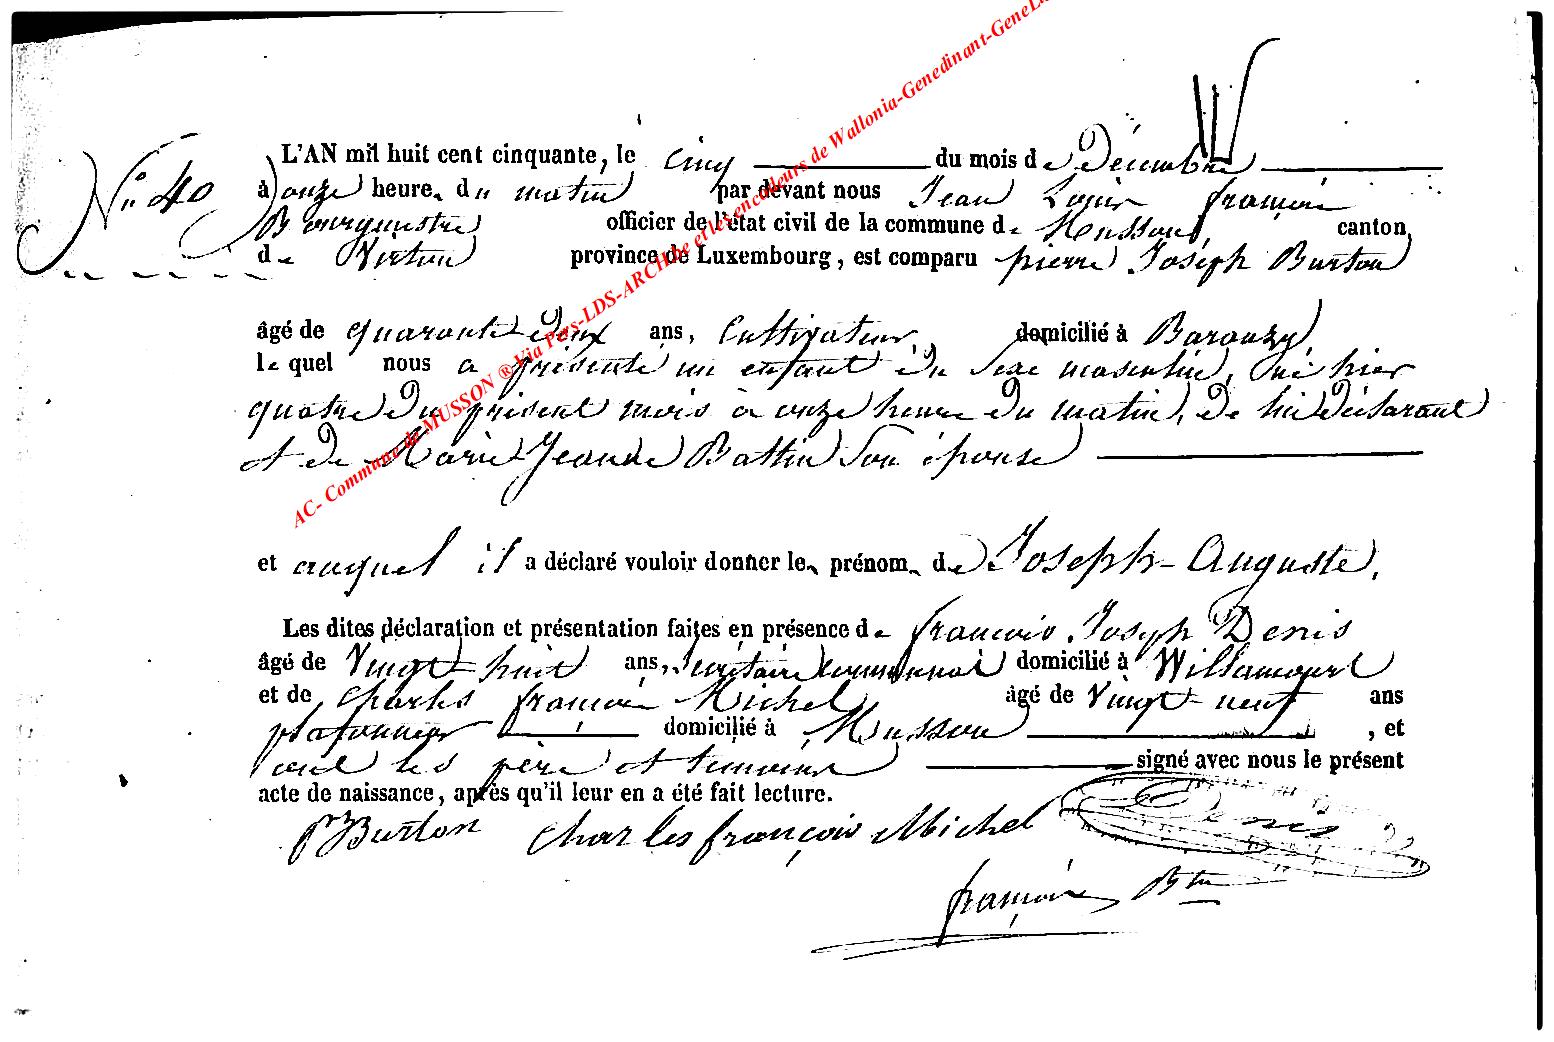 AC- Commune de MUSSON ® Via Pers-LDS-ARCHbe et les encodeurs de Wallonia-Genedinant-GeneL
N° 40
L'AN mil huit cent cinquante, le cinq du mois de Décembre
à onze heure du matin par devant nous Jean Louis françois
Bourgmestre officier de l'état civil de la commune de Musson, canton
de Virton province de Luxembourg, est comparu pierre Joseph Burton
âgé de quarante deux ans, Cultivateur, domicilié à Baranzy,
le quel nous a présenté un enfant du sexe masculin, né hier
quatre du présent mois à onze heure du matin, de lui déclarant
et de Marie Jeanne Battin son épouse
et auquel il a déclaré vouloir donner le prénom de Joseph-Auguste,
Les dites déclaration et présentation faites en présence de françois Joseph Denis
âgé de vingt-huit ans, secrétaire communal domicilié à Willancourt
et de Charles françois Michel âgé de vingt-neuf ans
plafonneur domicilié à Musson , et
les père et témoins signé avec nous le présent
acte de naissance, après qu'il leur en a été fait lecture.
Burton Charles françois Michel Denis
françois Btre